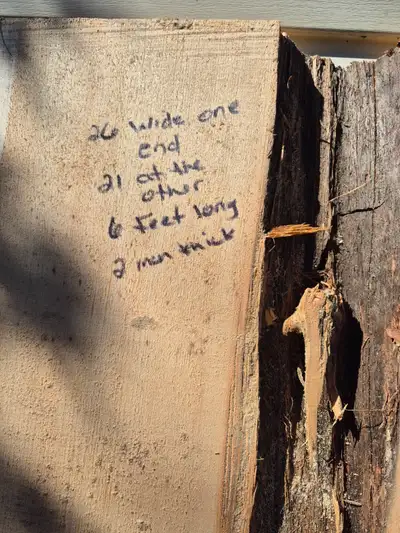 26 wide one
end
21 at the
other
6 feet long
2 inch thick